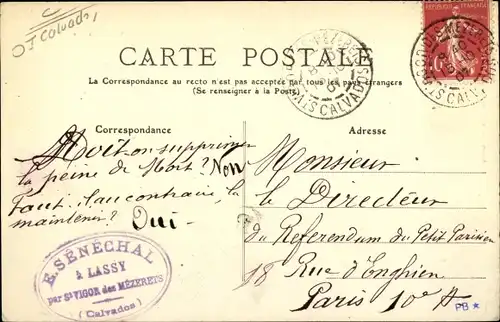 OI Calvados
CARTE POSTALE
La Correspondance au recto n'est pas acceptée par tous les pays étrangers
(Se renseigner à la Poste)
RÉPUBLIQUE FRANÇAISE
CALVADOS
CALVADOS
Correspondance
Adresse
Doit on supprimer
la peine de Mort? Non
Faut il au contraire la
maintenir? Oui -
Monsieur
le Directeur
du Referendum du Petit Parisien
18 Rue d'Enghien
Paris 10e A
E. SÉNÉCHAL
à LASSY
par St VIGOR des MÉZERETS
(Calvados)
PB *